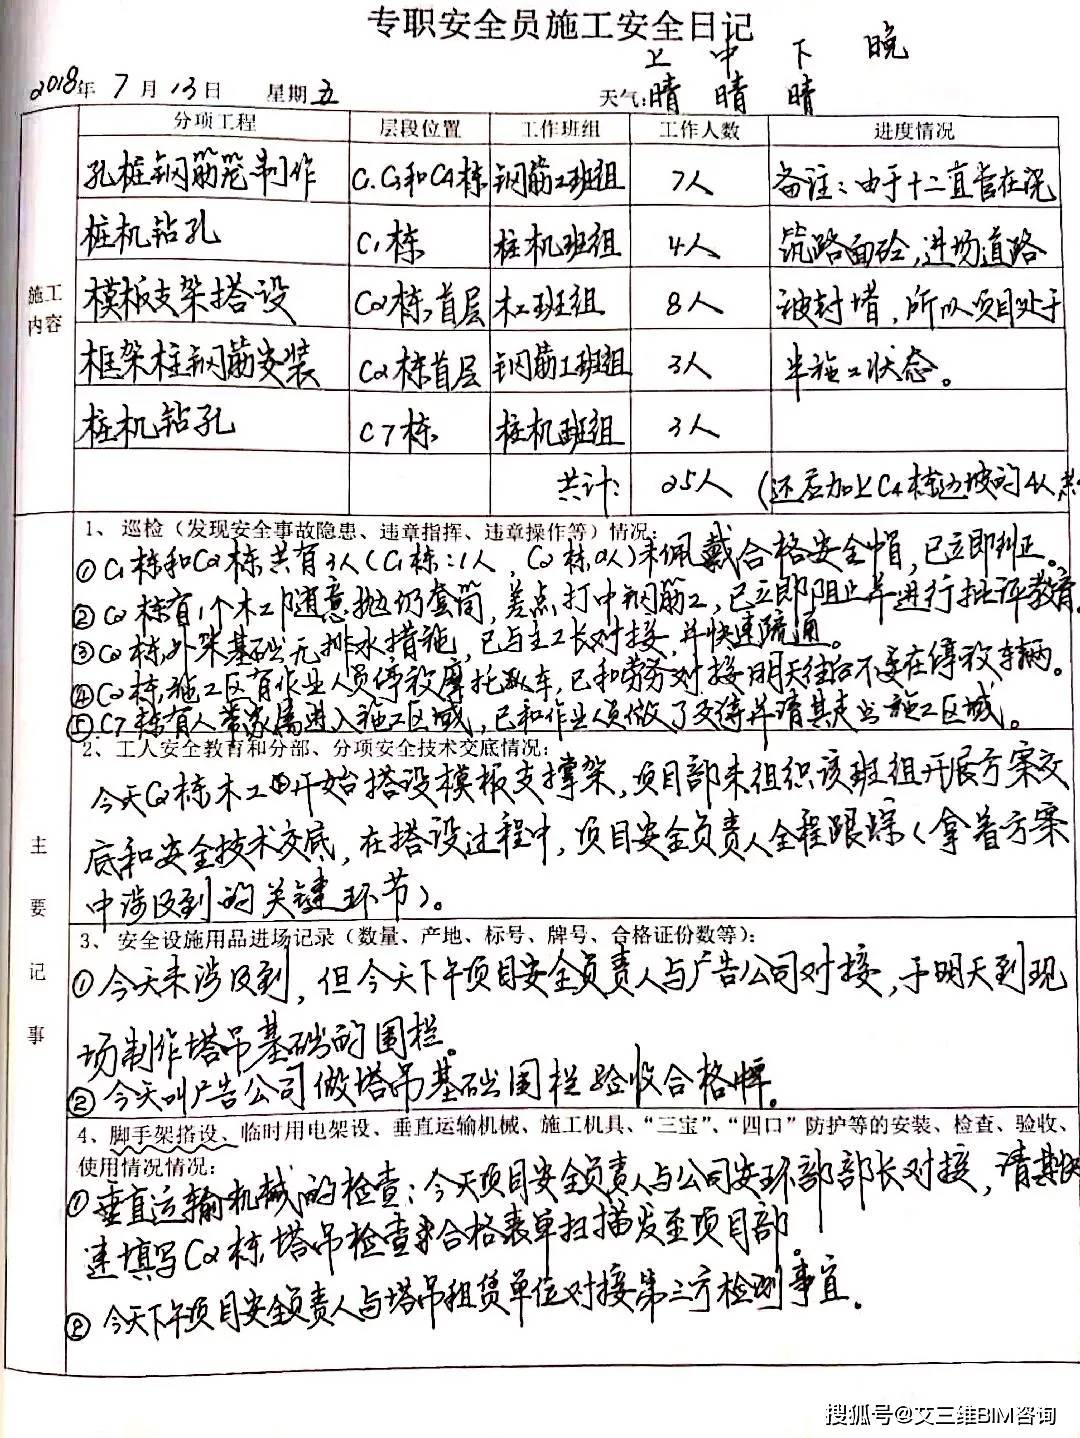 专职安全员施工安全日记
上 中 下 晚
2018年 7月13日 星期五 天气:晴 晴 晴
分项工程 层段位置 工作班组 工作人数 进度情况
孔桩钢筋笼制作 C1.C3和C4栋 钢筋工班组 7人 备注:由于十二直管在浇
桩机钻孔 C1栋 桩机班组 4人 筑路面砼,进场道路
施工
内容
模板支架搭设 C2栋,首层 木工班组 8人 被封堵,所以项目处于
框架柱钢筋安装 C2栋首层 钢筋工班组 3人 半施工状态。
桩机钻孔 C7栋 桩机班组 3人
共计: 25人 (还应加上C4栋边坡的4人
1、巡检(发现安全事故隐患、违章指挥、违章操作等)情况:
①C1栋和C2栋共有3人(C1栋:1人,C2栋2人)未佩戴合格安全帽,已立即纠正。
②C2栋有1个木工随意抛扔套筒,差点打中钢筋工,已立即阻止并进行批评教育。
③C2栋,外架基础无排水措施,已与主工长对接,并快速疏通。
④C2栋,施工区有作业人员停放摩托车,已和劳务对接明天往后不要在停放车辆。
⑤C7栋有人带家属进入施工区域,已和作业人员做了交待并请其走出施工区域。
2、工人安全教育和分部、分项安全技术交底情况:
今天C2栋木工开始搭设模板支撑架,项目部未组织该班组开展方案交
底和安全技术交底,在搭设过程中,项目安全负责人全程跟踪(拿着方案
中涉及到的关键环节)。
主
要
记
事
3、安全设施用品进场记录(数量、产地、标号、牌号、合格证份数等):
①今天未涉及到,但今天下午项目安全负责人与广告公司对接,于明天到现
场制作塔吊基础的围栏。
②今天叫广告公司做塔吊基础围栏验收合格牌。
4、脚手架搭设、临时用电架设、垂直运输机械、施工机具、“三宝”、“四口”防护等的安装、检查、验收、
使用情况情况:
①垂直运输机械的检查:今天项目安全负责人与公司安环部部长对接,请其快
速填写C2栋,塔吊检查合格表单扫描发至项目部。
②今天下午项目安全负责人与塔吊租赁单位对接第三方检测事宜。
搜狐号@艾三维BIM咨询